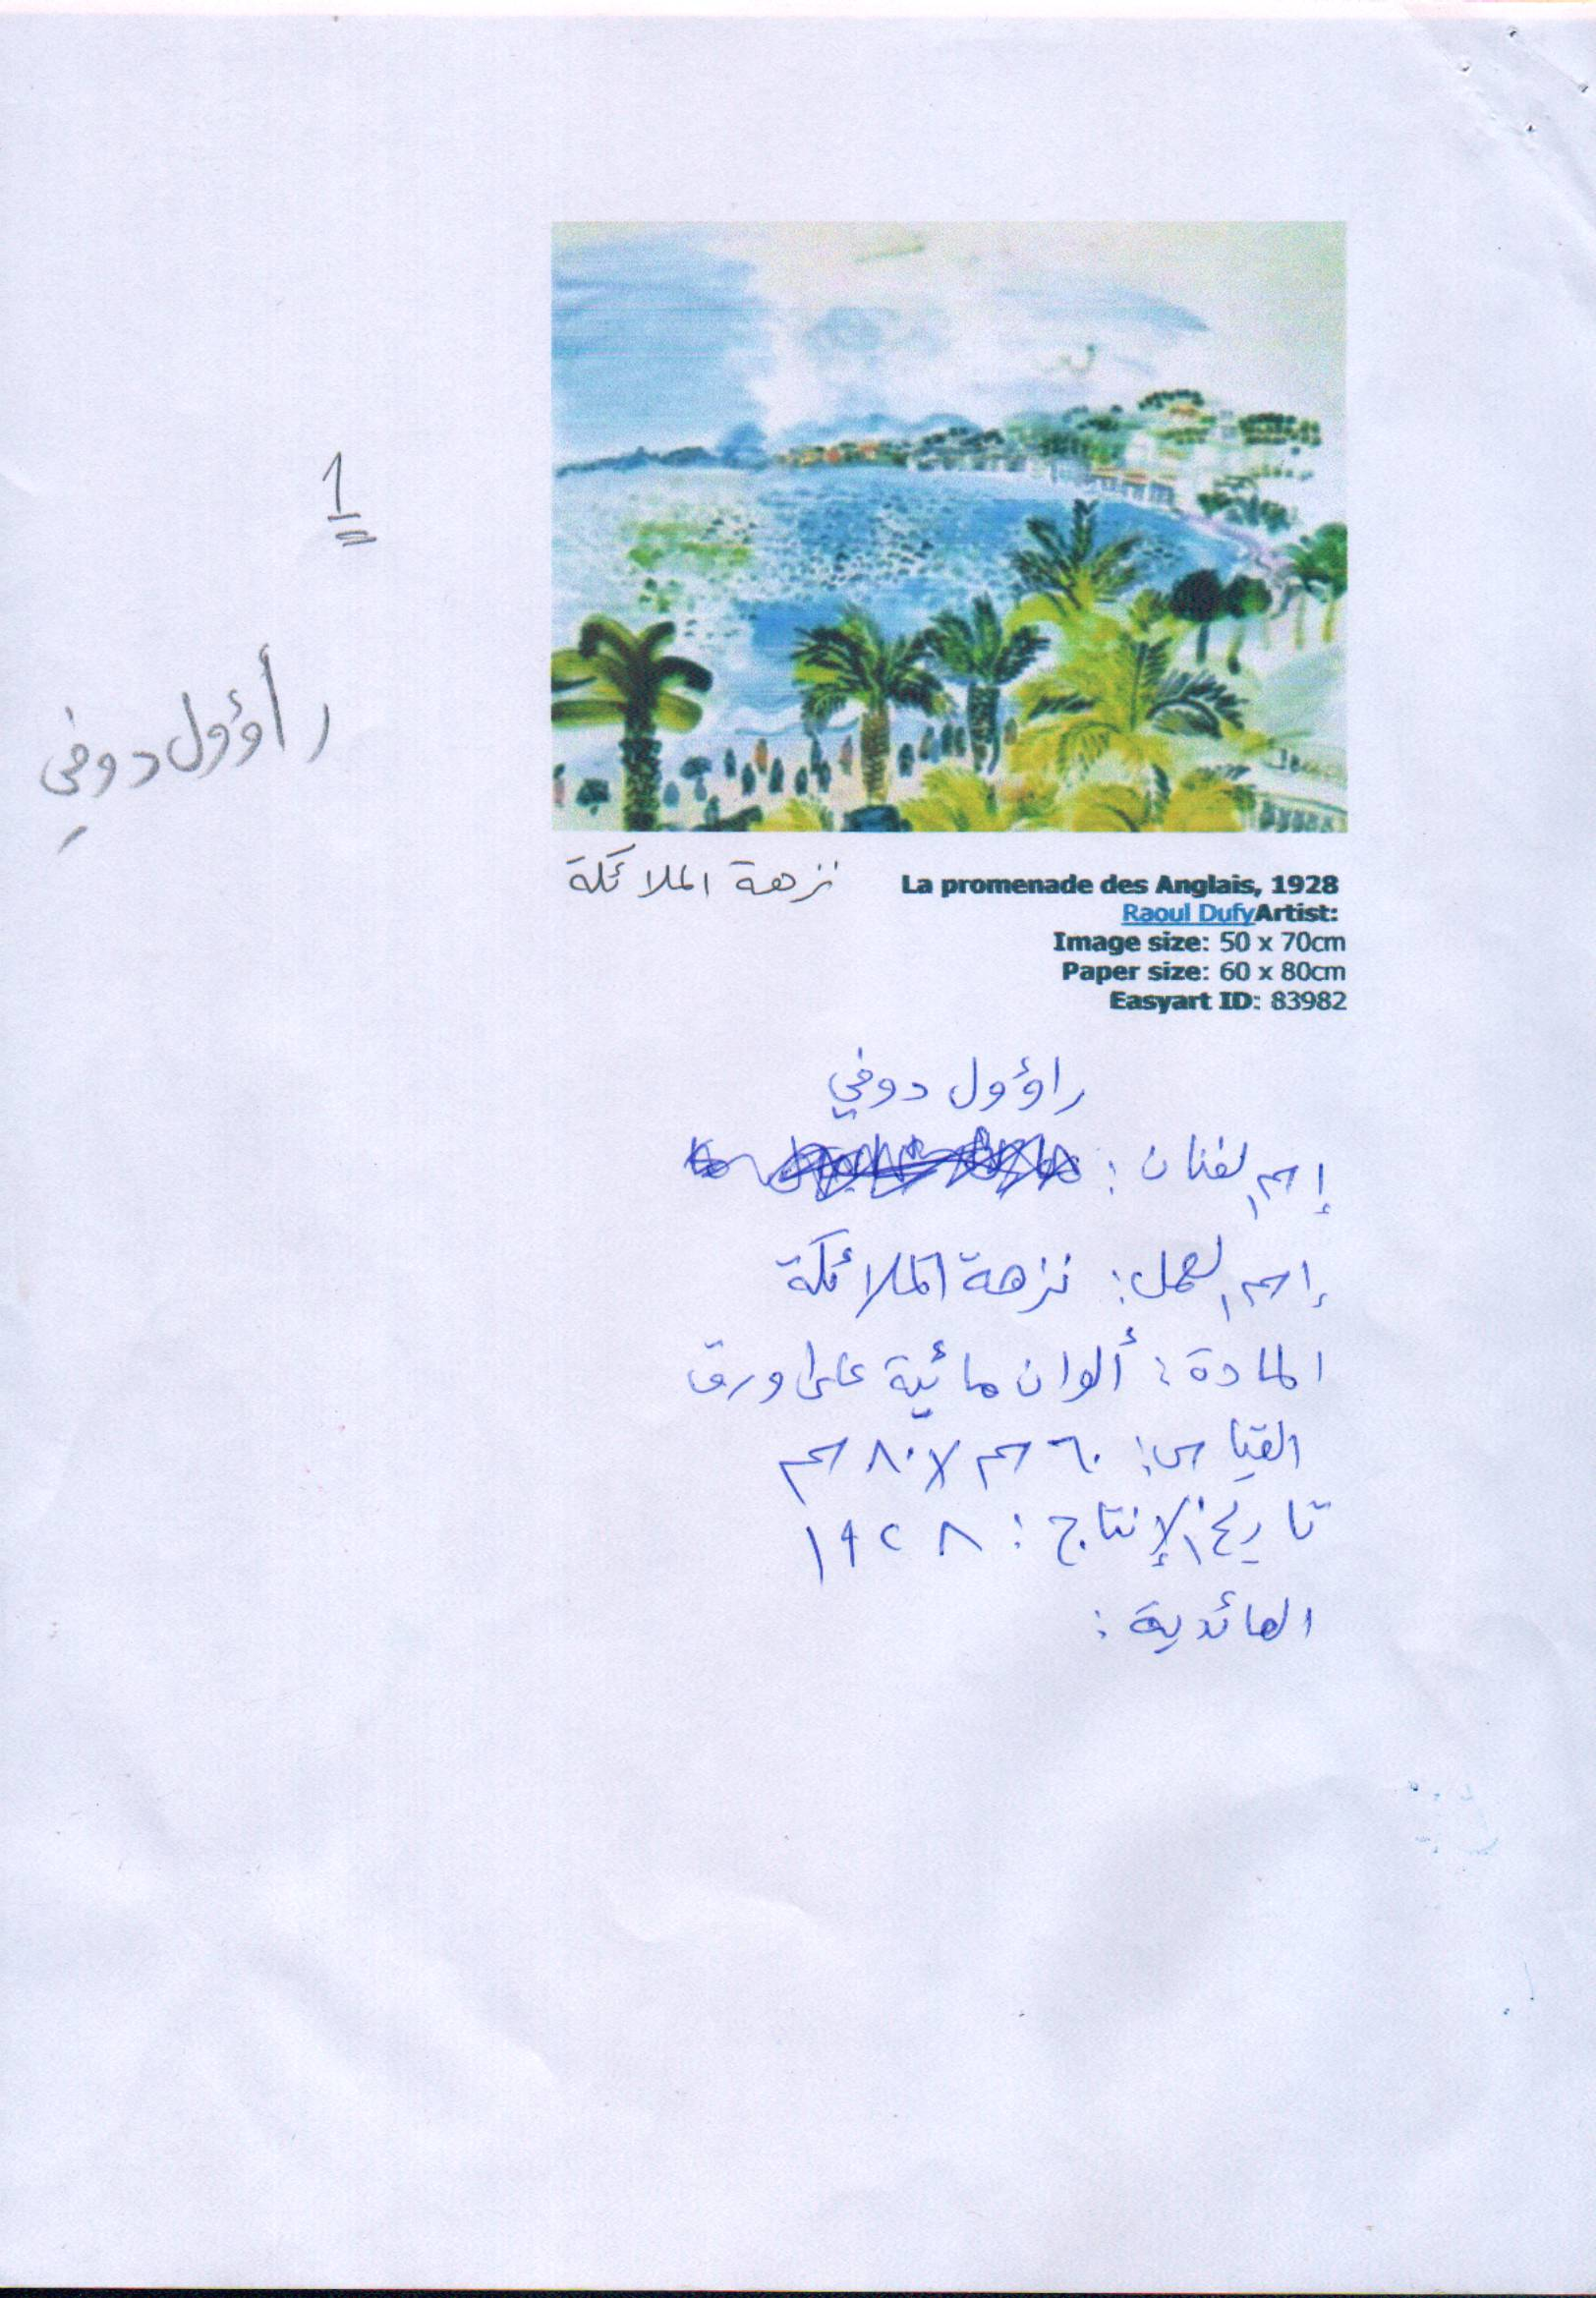 1
راؤول دوفي
نزهة الملائكة
La promenade des Anglais, 1928
Raoul DufyArtist:
Image size: 50 x 70cm
Paper size: 60 x 80cm
Easyart ID: 83982
راؤول دوفي
إسم الفنان :
إسم العمل : نزهة الملائكة
المادة : ألوان مائية على ورق
القياس : ٦٠ سم x ٨٠ سم
تاريخ الإنتاج : ١٩٢٨
العائدية :